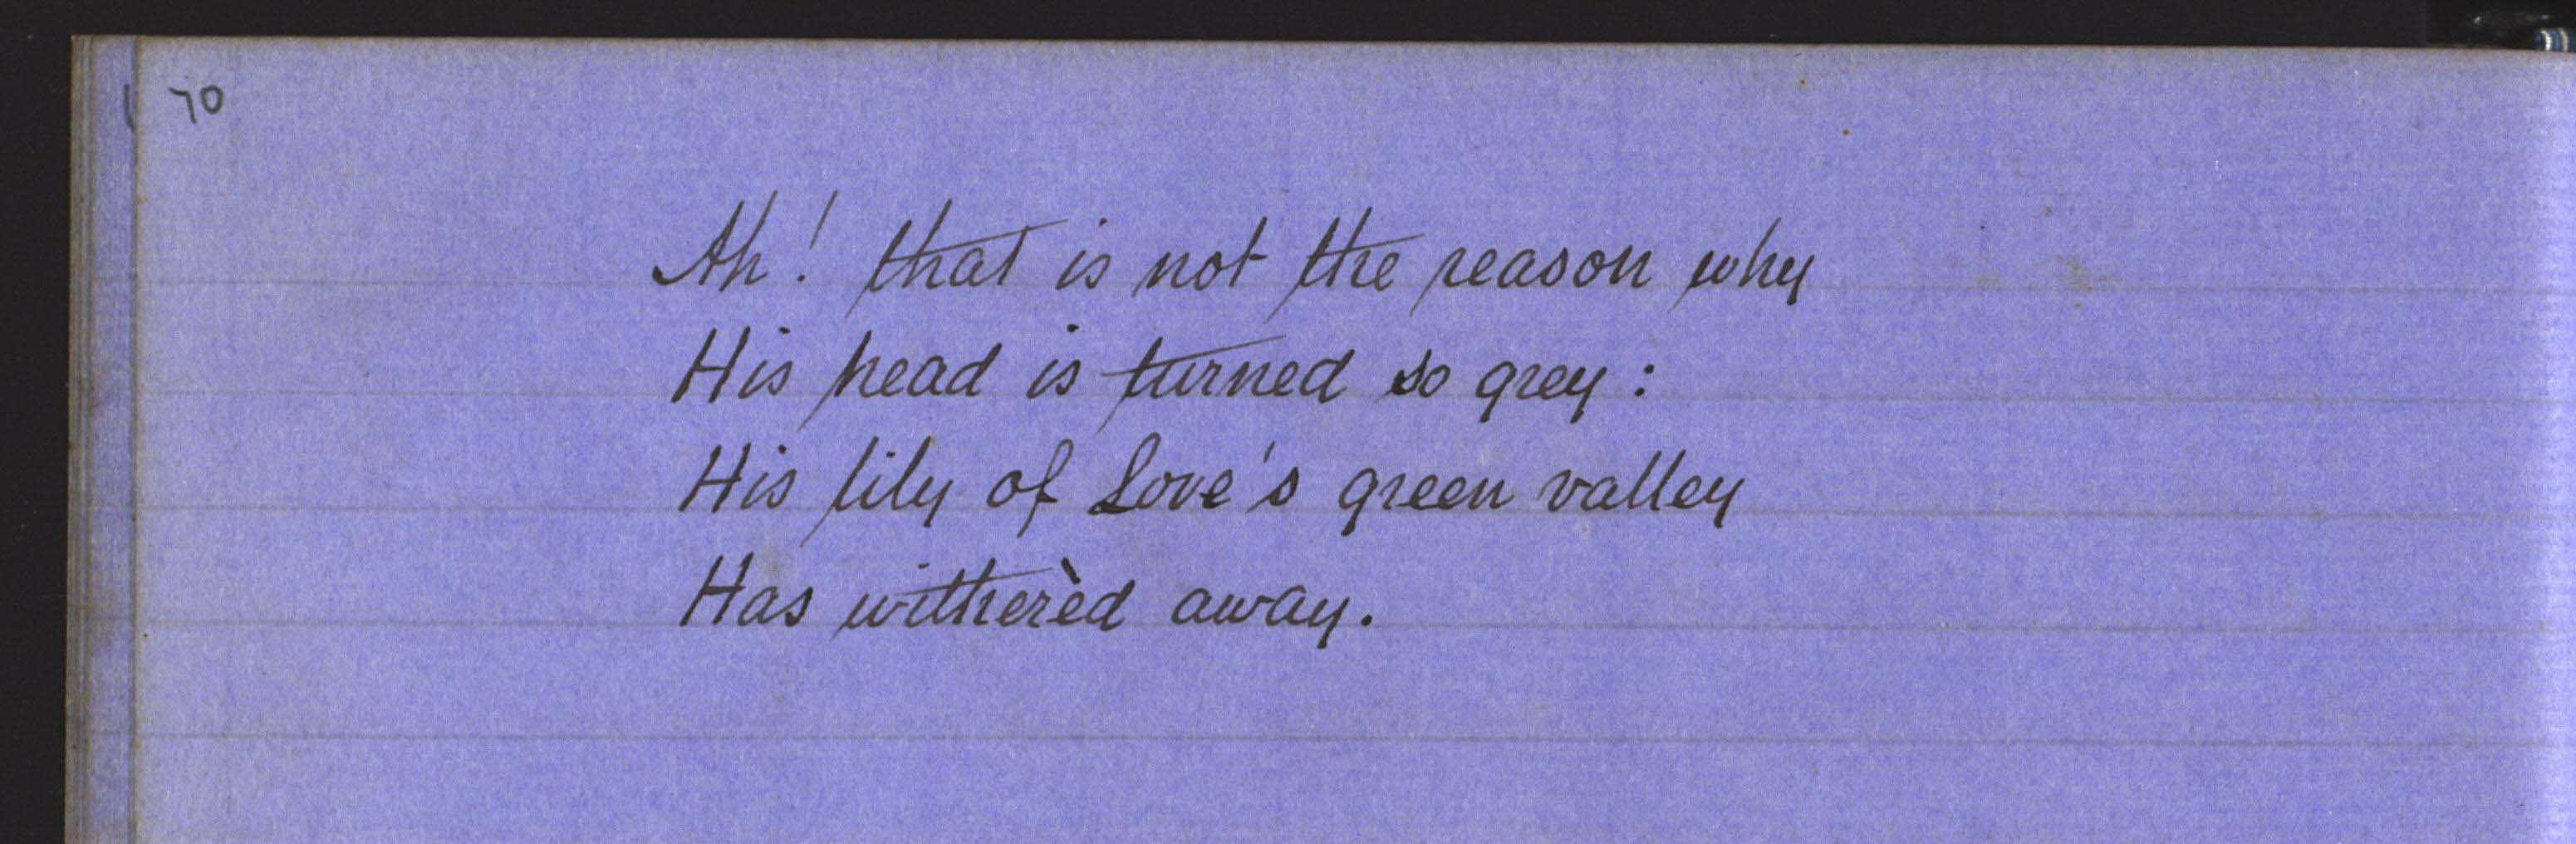 70
Ah! that is not the reason why
His head is turned so grey:
His lily of Love's green valley
Has witherèd away.